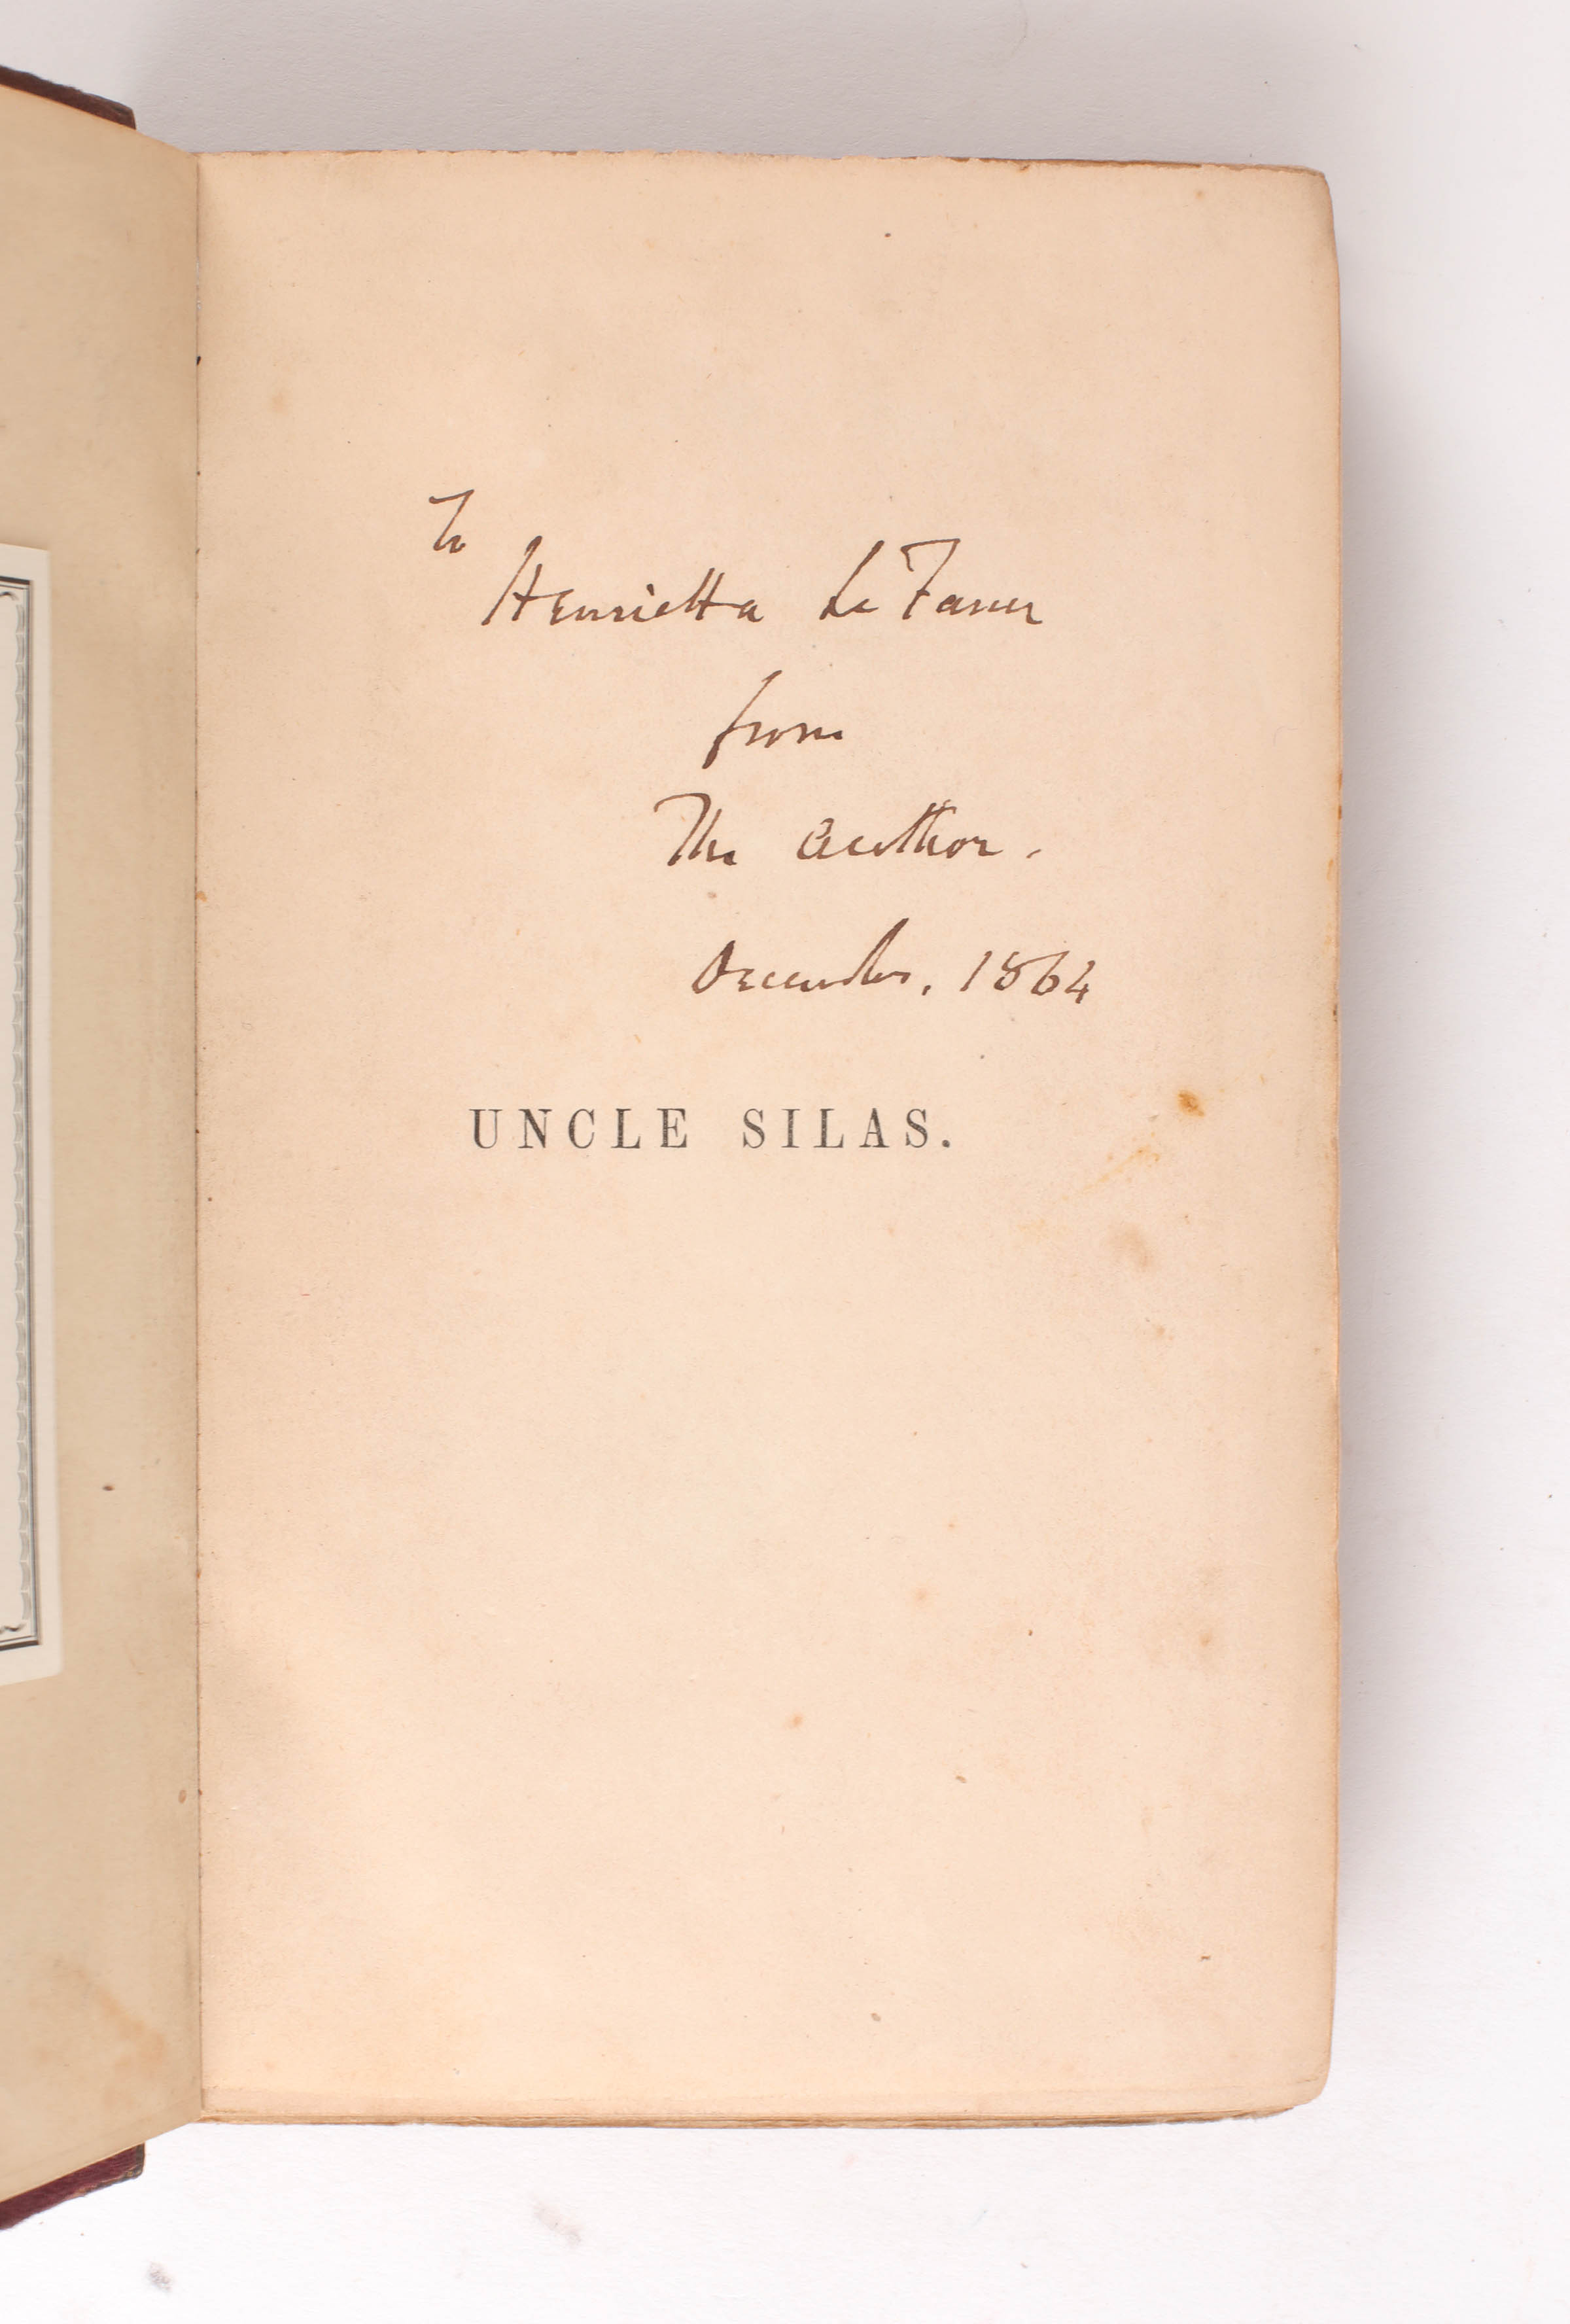 To
Henrietta Le Fanu
from
The Author.
December, 1864
UNCLE SILAS.